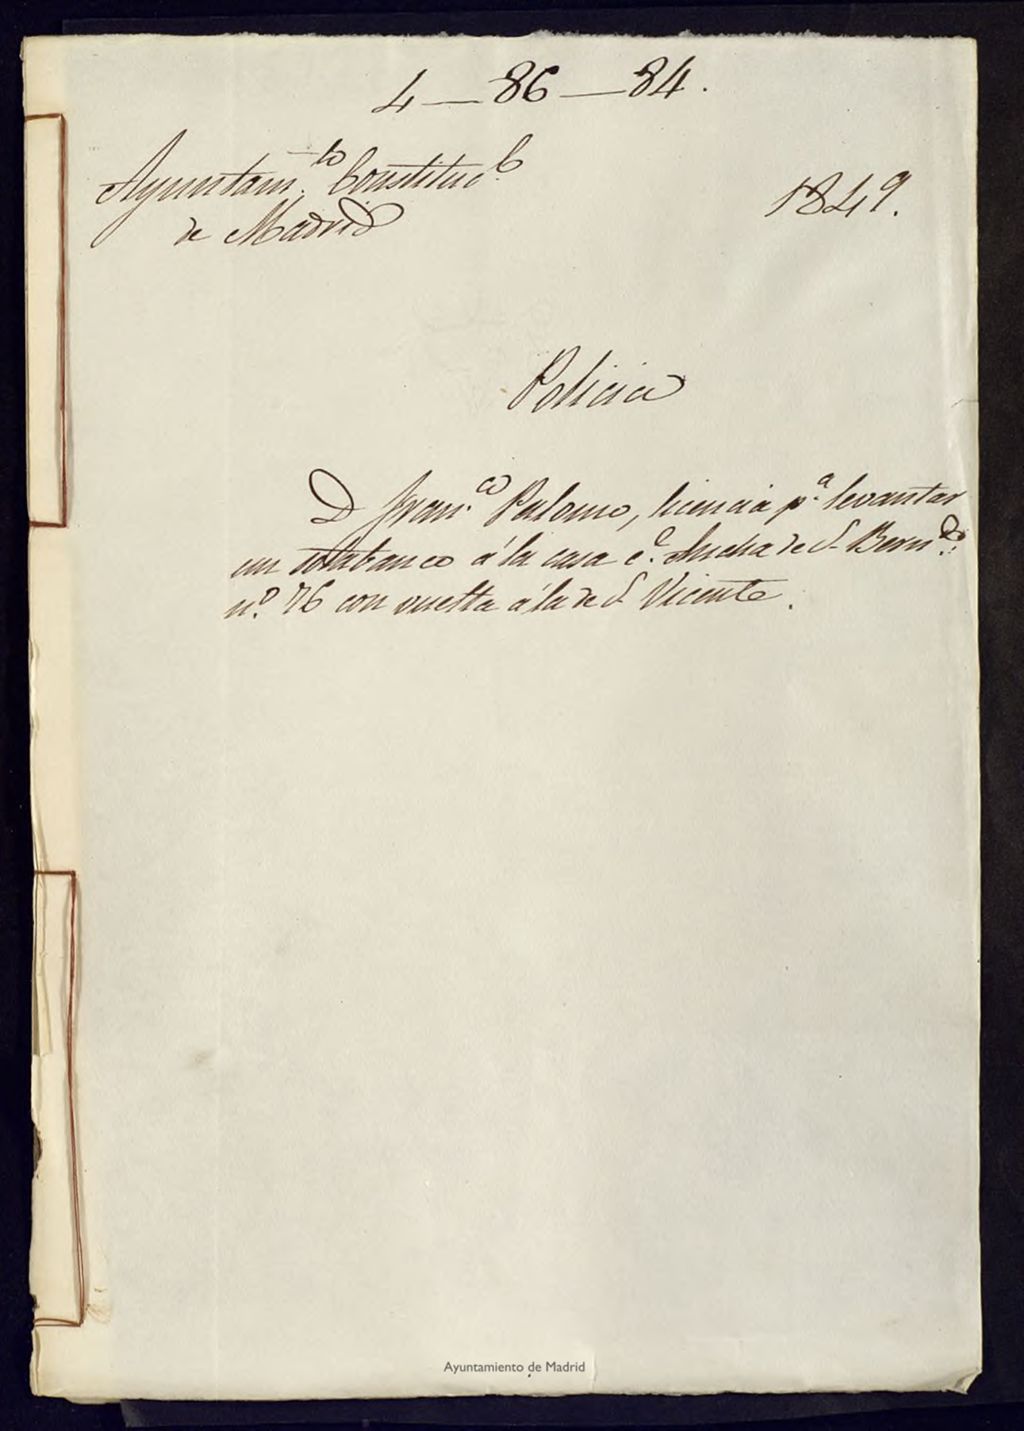 4—86—84.
Ayuntam.to Constituc.l
de Madrid
1849.
Policia
D Fran.co Palomo, licencia p.a levantar
un sotabanco á la casa c.e Ancha de S. Bern.do
n.o 76 con vuelta á la de S. Vicente.
Ayuntamiento de Madrid